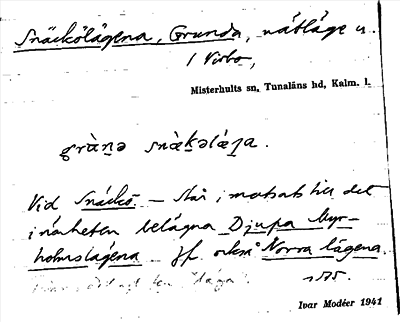 Snäckölägena, Grunda, nätläge u.
/ Virbo,
Misterhults sn, Tunaläns hd, Kalm. l.
grànə snækəlá̱na.
Vid Snäckö. – Står i motsats till det
i närheten belägna Djupa Myr-
holmslägena. Jf. också Norra lägena.
s 175.
Ivar Modéer 1941